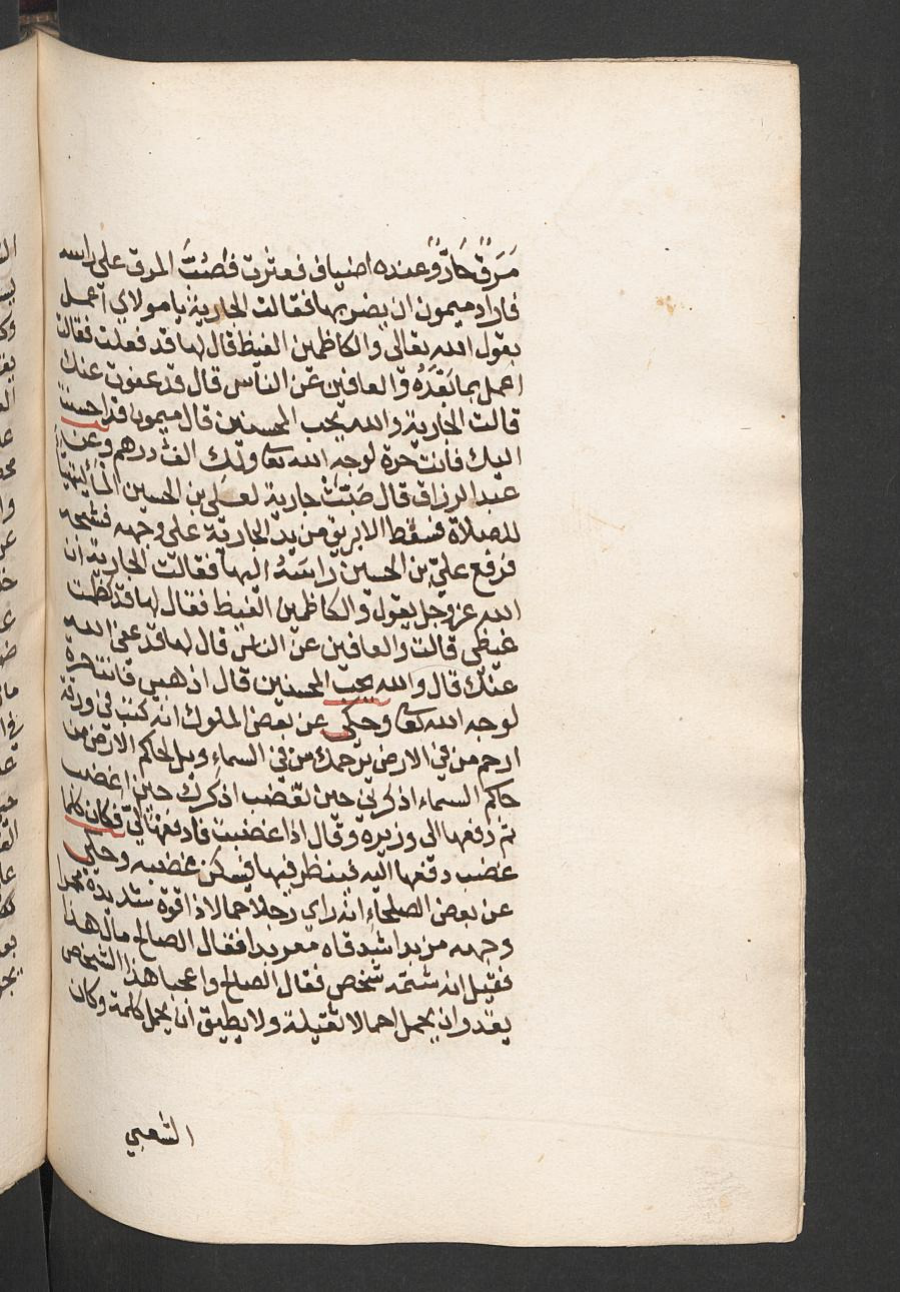 مَرَقٌ حَارٌّ وعنده اضياف فعثرت فصُبَّتْ المرق على راسه
فاراد ميمون ان يضربها فقالت الجارية يا مولاي اعمل
بقول الله تعالى والكاظمين الغيظ قال لها قد فعلت فقالت
اعمل بما بَعْدَهُ والعافين عن الناس قال قد عفوت عنك
قالت الجارية والله يحب المحسنين قال ميمون قد احسنت
اليك فانت حرة لوجه الله تعا ولك الف درهم وعن
عبد الرزاق قال صَبَّتْ جارية لعلي بن الحسين الماء ليتهيأ
للصلاة فسقط الابريق من يد الجارية على وجهه فشجه
فرفع عليّ بن الحسين راسَهُ اليها فقالت الجارية ان
الله عز وجل يقول والكاظمين الغيظ فقال لها قد كظمت
غيظي قالت والعافين عن الناس قال لها قد عفى الله
عنك قال والله يحب المحسنين قال اذهبي فانت حرة
لوجه الله تعا وحكي عن بعض الملوك انه كتب في ورقة
ارحم من في الارض يرحمك من في السماء ويل لحاكم الارض من
حاكم السماء اذكرني حين تغضب اذكرك حين اغضب
ثم دفعها الى وزيره وقال اذا غضبت فادفعها اليّ فكان كلما
غضب دفعها اليه فينظر فيها فيسكن غضبه وحكي
عن بعض الصلحاء انه راي رجلا حمالا ذا قوة شديدة محمرا
وجهه مزبدا شدقاه معربدا فقال الصالح مال هذا
فقيل انه شتمه شخص فقال الصالح واعجبا هذا الشخص
يقدر ان يحمل احمالا ثقيلة ولا يطيق ان يحمل كلمة وكان
الشعبي